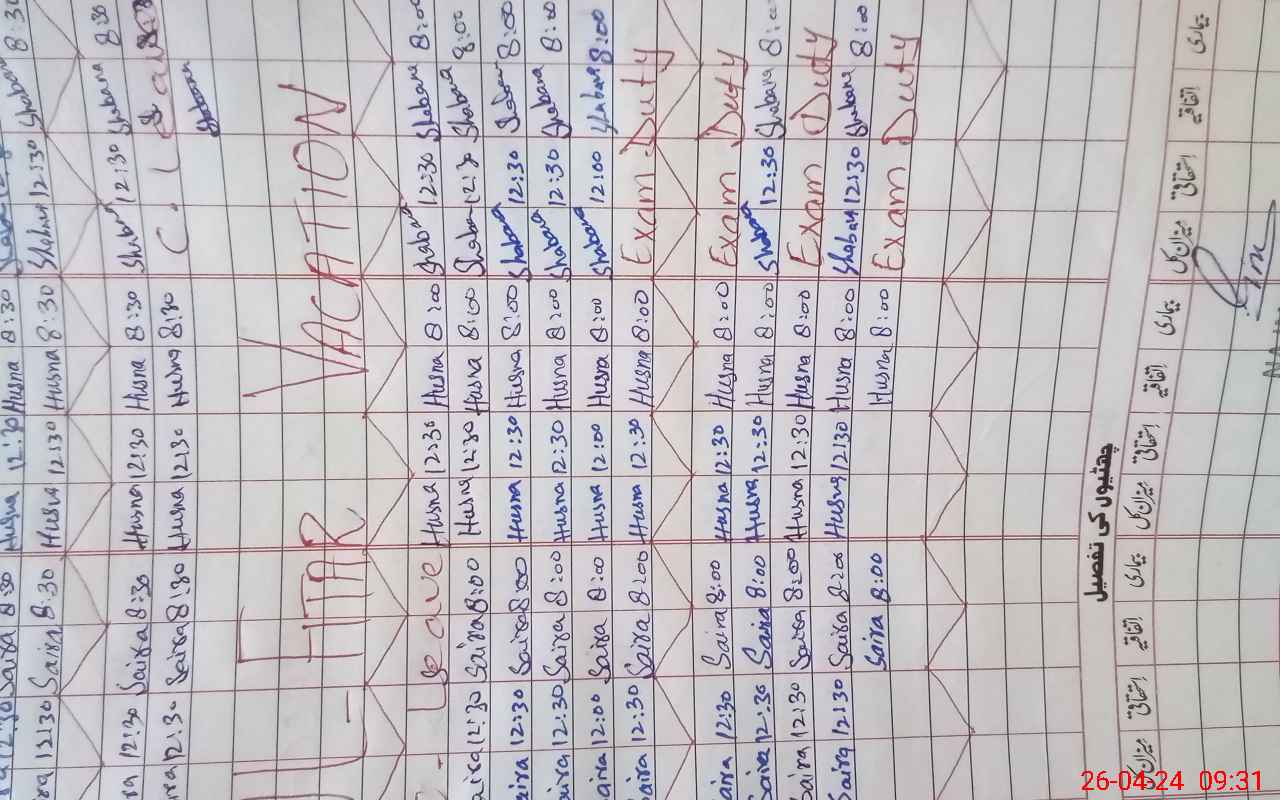 12:30 Saira 8:30 Husna 12:30 Husna 8:30
ira 12:30 Saira 8:30 Husna 12:30 Husna 8:30 Shaban 12:30 Shabana 8:30
ra 12:30 Saira 8:30 Husna 12:30 Husna 8:30 Shaban 12:30 Shabana 8:30
ira 12:30 Saira 8:30 Husna 12:30 Husna 8:30 C. Leave
Shabana
UL-FITAR VACATION
- Leave Husna 12:30 Husna 8:00 Shabana 12:30 Shabana 8:00
aira 12:30 Saira 8:00 Husna 12:30 Husna 8:00 Shabana 12:30 Shabana 8:00
aira 12:30 Saira 8:00 Husna 12:30 Husna 8:00 Shabana 12:30 Shabana 8:00
aira 12:30 Saira 8:00 Husna 12:30 Husna 8:00 Shabana 12:30 Shabana 8:00
aira 12:00 Saira 8:00 Husna 12:00 Husna 8:00 Shabana 12:00 Shabana 8:00
aira 12:30 Saira 8:00 Husna 12:30 Husna 8:00 Exam Duty
aira 12:30 Saira 8:00 Husna 12:30 Husna 8:00 Exam Duty
aira 12:30 Saira 8:00 Husna 12:30 Husna 8:00 Shabana 12:30 Shabana 8:00
Saira 12:30 Saira 8:00 Husna 12:30 Husna 8:00 Exam Duty
Saira 12:30 Saira 8:00 Husna 12:30 Husna 8:00 Shabana 12:30 Shabana 8:00
Saira 8:00 Husna 8:00 Exam Duty
چھٹیوں کی تفصیل
میزان کل استحقاقی اتفاقیہ بیماری میزان کل استحقاقی اتفاقیہ بیماری میزان کل استحقاقی اتفاقیہ بیماری
26-04-24 09:31